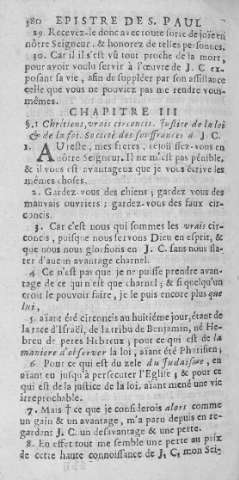 380 EPISTRE DE S. PAUL
29. Recevez-le donc avec toute sorte de joie en
nôtre Seigneur, & honorez de telles personnes.
30. Car il s'est vû tout proche de la mort,
pour avoir voulu servir à l'œuvre de J. C ex-
posant sa vie, afin de suppléer par son assistance
celle que vous ne pouviez pas me rendre vous-
mêmes.
CHAPITRE III
§. 1 Chrétiens, vrais circoncis. Justice de la loi
& de la foi. Société des souffrances à J. C.
1. AU reste, mes freres, rejoüissez-vous en
nôtre Seigneur. Il ne m'est pas pénible,
& il vous est avantageux que je vous écrive les
mêmes choses.
2. Gardez-vous des chiens; gardez-vous des
mauvais ouvriers; gardez-vous des faux cir-
concis.
3. Car c'est nous qui sommes les vrais cir-
concis, puisque nous servons Dieu en esprit, &
que nous nous glorifions en J. C. sans nous fla-
ter d'aucun avantage charnel.
4 Ce n'est pas que je ne puisse prendre avan-
tage de ce qui n'est que charnel; & si quelqu'un
croit le pouvoir faire, je le puis encore plus que
lui,
5. aïant été circoncis au huitiéme jour, étant de
la race d'Israël, de la tribu de Benjamin, né He-
breu de peres Hebreux; pour ce qui est de la
maniere d'observer la loi, aïant été Pharisien;
6. Pour ce qui est du zele du Judaïsme, en
aïant eu jusqu'à persecuter l'Eglise; & pour ce
qui est de la justice de la loi, aïant mené une vie
irreprochable.
7. Mais † ce que je considerois alors comme
un gain & un avantage, m'a paru depuis en re-
gardant J. C. un desavantage & une perte.
8. En effet tout me semble une perte au prix
de cette haute connoissance de J. C. mon Sei-